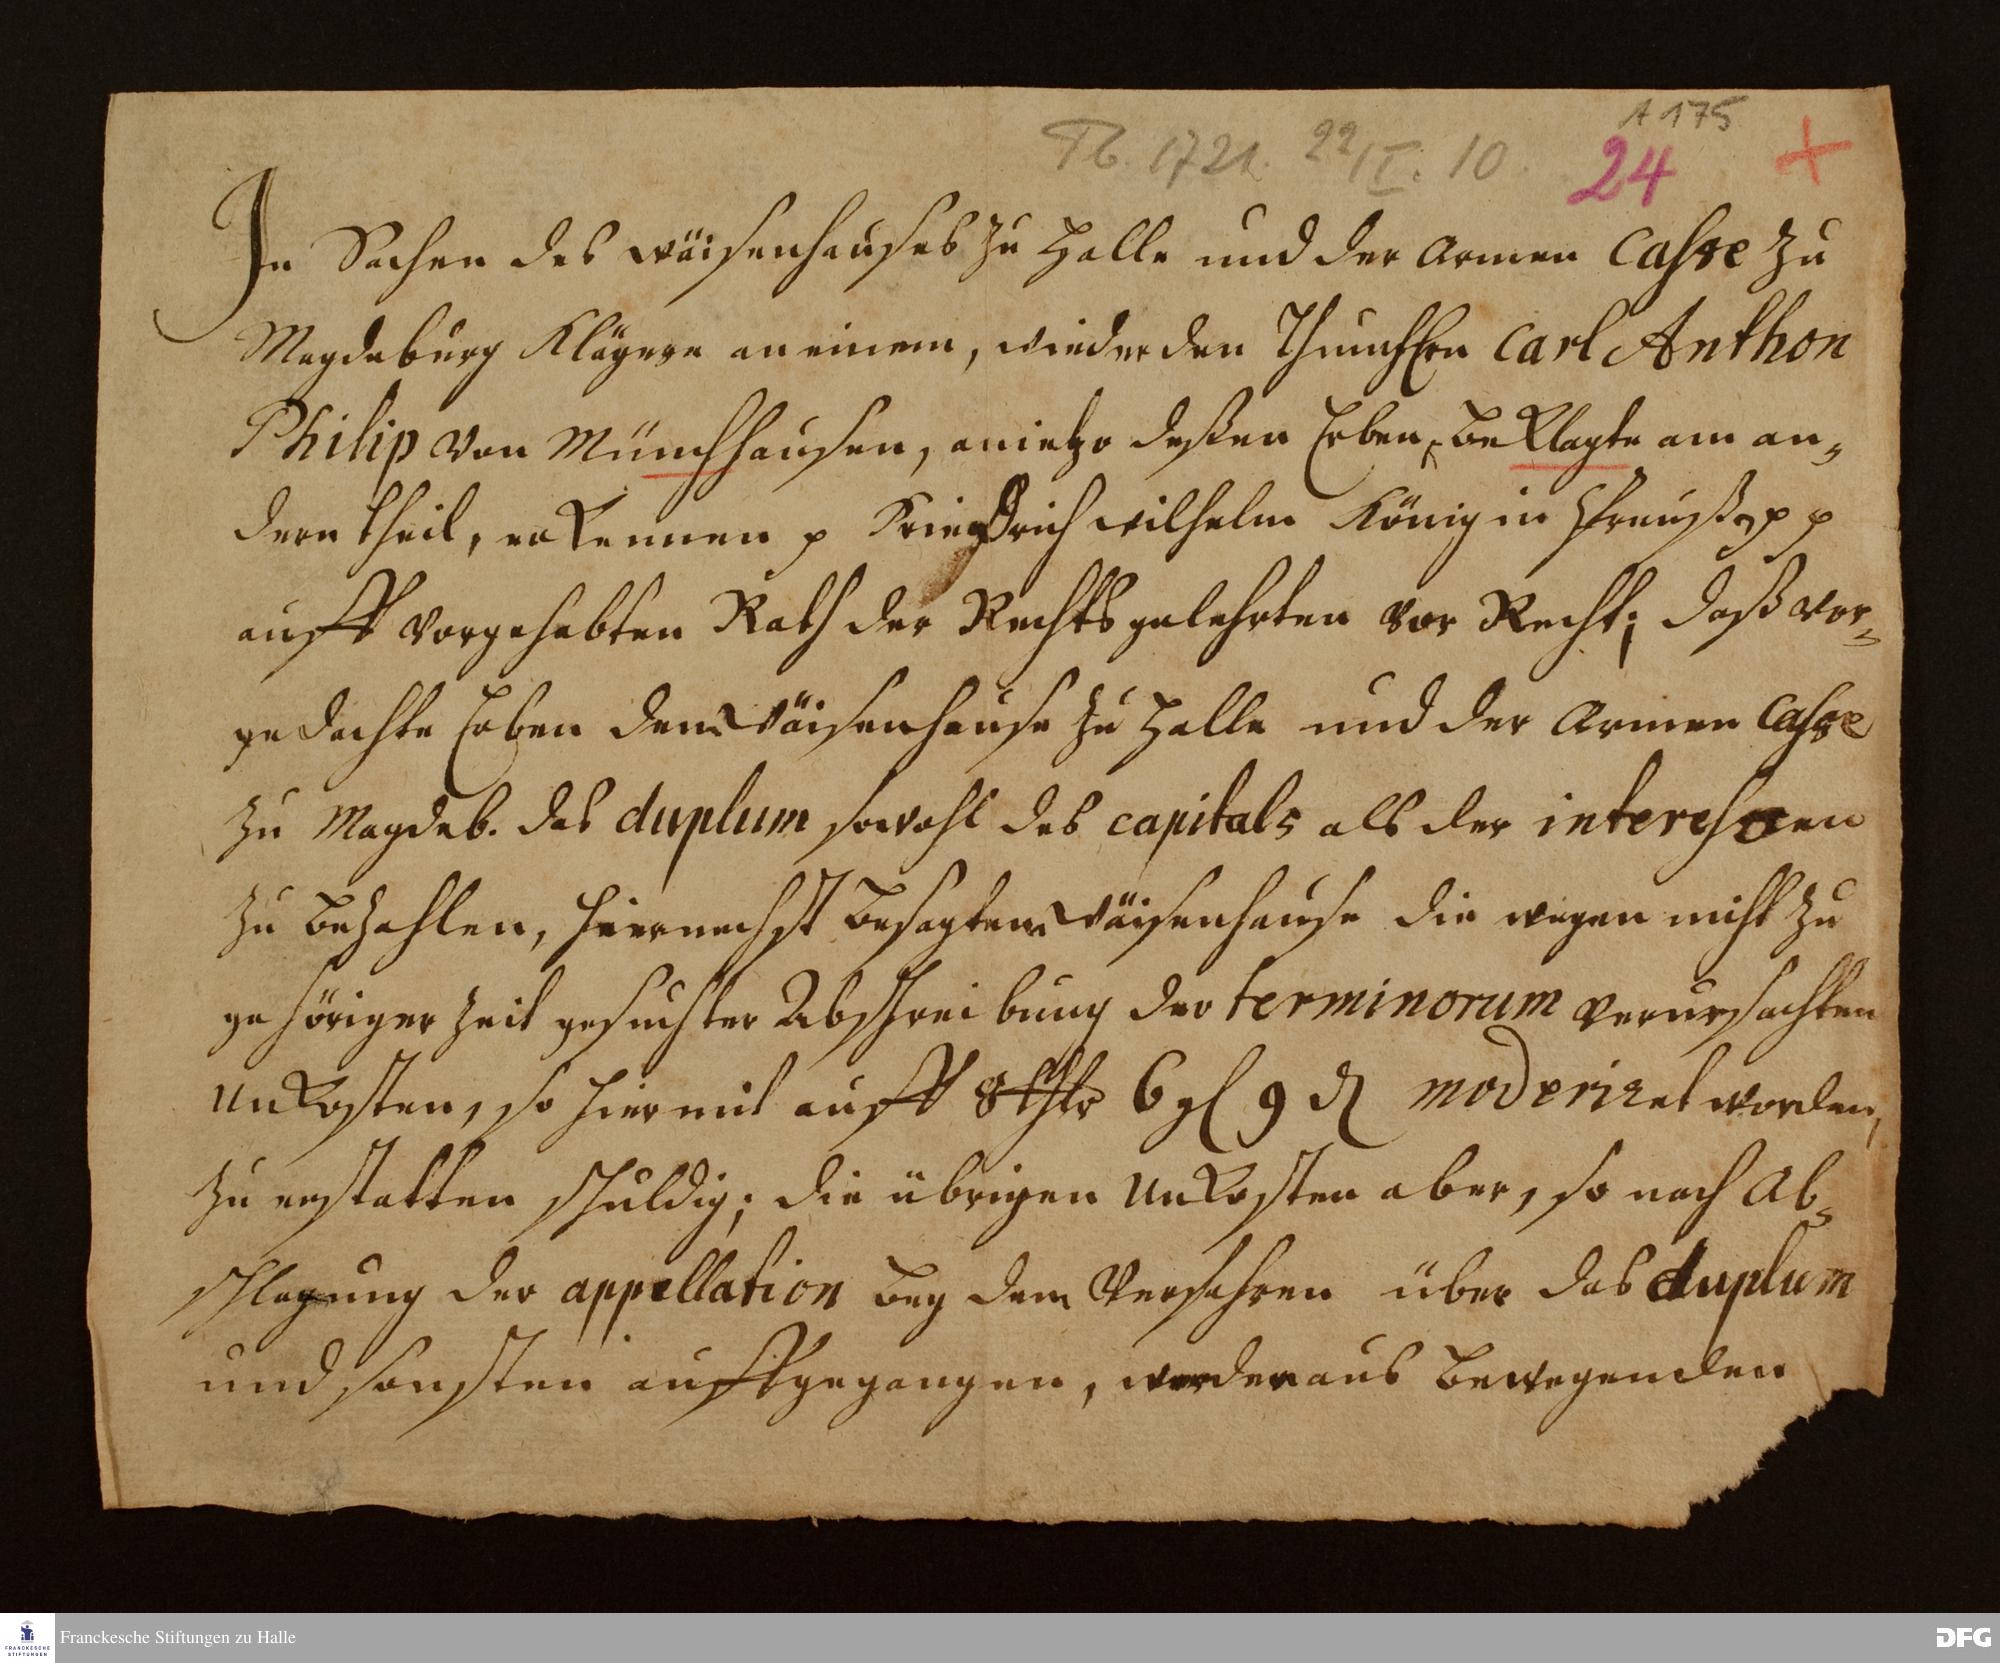 A 175
Tb. 1721. 22/I. 10. 24 +
In Sachen des Wäisenhauses zu Halle und der Armen Casse zu
Magdeburg Klägere an einem, wieder den Thumhhrn Carl Anthon
Philip von Münchhausen, anietzo deßen Erben, beklagte am an-
dern theil, erkennen p Friedrich Wilhelm König in Preuß. p p
aufft vorgehabten Rath der Rechtsgelehrten vor Recht; daß vor-
gedachte Erben dem Wäisenhause zu Halle und der Armen Casse
zu Magdeb. das duplum sowohl des capitals als der interessen
zu bezahlen, hiernechst besagtem Wäisenhause die wegen nicht zu
gehöriger Zeit gesuchter Abschreibung der terminorum verursachten
Unkosten, so hiermit aufft 8 thlr 6 gl 9 ₰ moderiret worden,
zu erstatten schuldig; die übrigen Unkosten aber, so nach Ab-
schlagung der appellation bey dem Verfahren über das duplum
und sonsten aufftgegangen, werden aus bewegenden
FRANCKESCHE STIFTUNGEN
Franckesche Stiftungen zu Halle
DFG